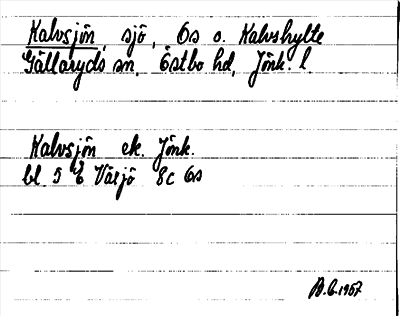 Kalvsjön, sjö, 6s o. Kalvshylte
Gällaryds sn, Östbo hd, Jönk. l.
Kalvsjön ek. Jönk.
bl. 5 E Växjö 8c 6s
1957